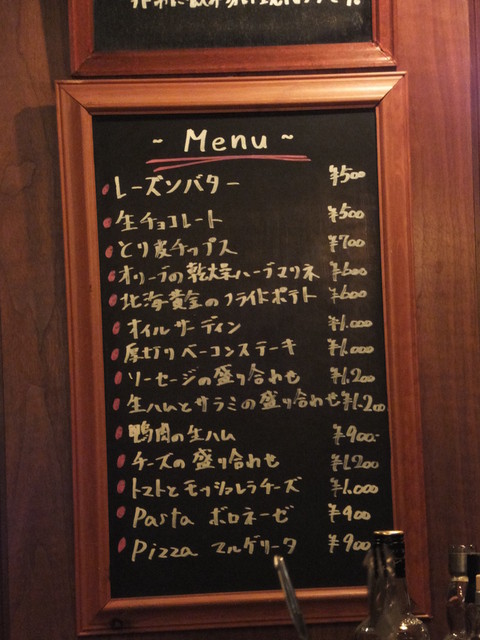 ~ Menu ~
レーズンバター ¥500
生チョコレート ¥500
とり皮チップス ¥700
オリーブの乾燥ハーブマリネ ¥600
北海黄金のフライドポテト ¥600
オイルサーディン ¥1.000
厚切りベーコンステーキ ¥1.000
ソーセージの盛り合わせ ¥1.200
生ハムとサラミの盛り合わせ ¥1.200
鴨肉の生ハム ¥900
チーズの盛り合わせ ¥1.200
トマトとモッツァレラチーズ ¥1.000
Pasta ボロネーゼ ¥900
Pizza マルゲリータ ¥900